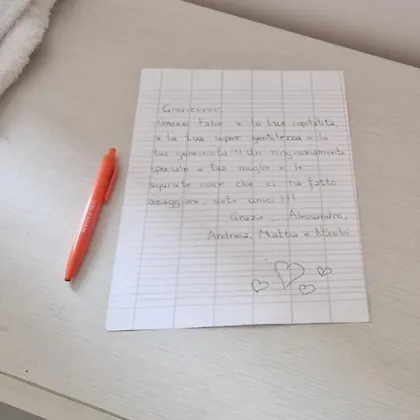 Grazie Fabio x la tua ospitalità,
x la tua super gentilezza e la
tua generosità!!! Un ringraziamento
speciale a tua moglie x le
squisite cose che ci ha fatto
assaggiare, siete unici!!!
Grazie Alessandro,
Andreia, Mattia e Nicolò